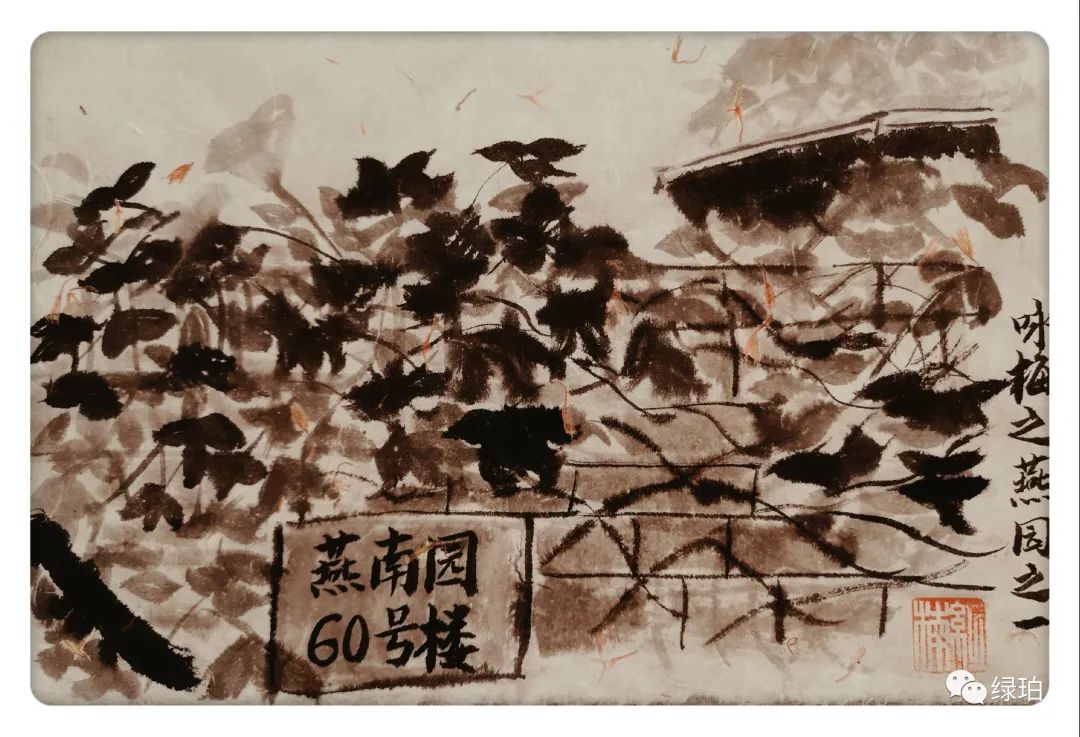 咏梅之燕园之一
燕南园
60号楼
绿珀